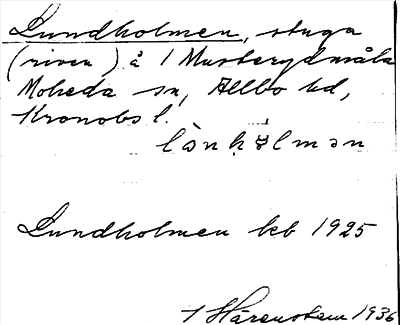 Lundholmen, stuga
(riven) å 1 Musterydsmåla
Moheda sn, Allbo hd,
Kronobs l.
Lundholmen kb 1925
Härenstam 1936